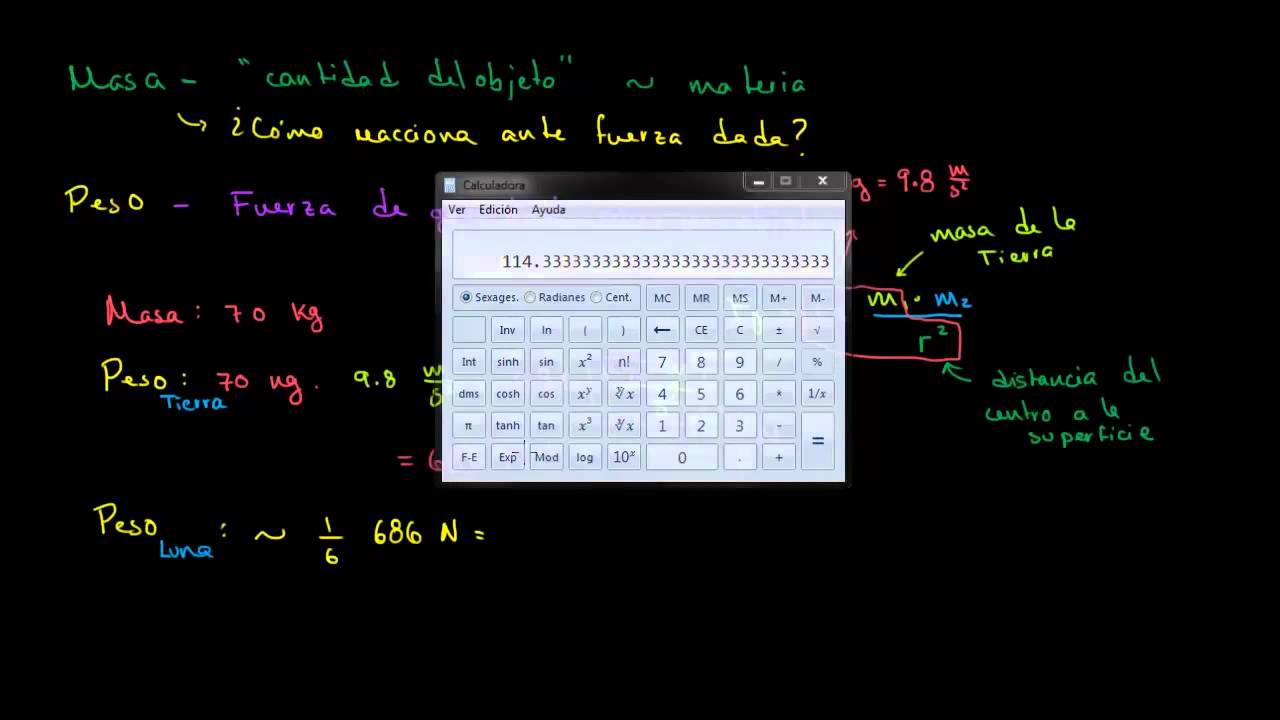 Masa - "cantidad del objeto" ~ materia
¿Cómo reacciona ante fuerza dada?
Peso - Fuerza de g
g = 9.8 m/s²
masa de la
Tierra
m₁ · m₂
r²
distancia del
centro a la
superficie
Masa: 70 kg
Peso Tierra: 70 kg . 9.8 m/s
= 6
Peso Luna: ~ 1/6 686 N =
Calculadora
Ver Edición Ayuda
114.33333333333333333333333333333
Sexages. Radianes Cent. MC MR MS M+ M-
Inv ln ( ) ← CE C ± √
Int sinh sin x² n! 7 8 9 / %
dms cosh cos xʸ ʸ√x 4 5 6 * 1/x
π tanh tan x³ ³√x 1 2 3 - =
F-E Exp Mod log 10ˣ 0 . +